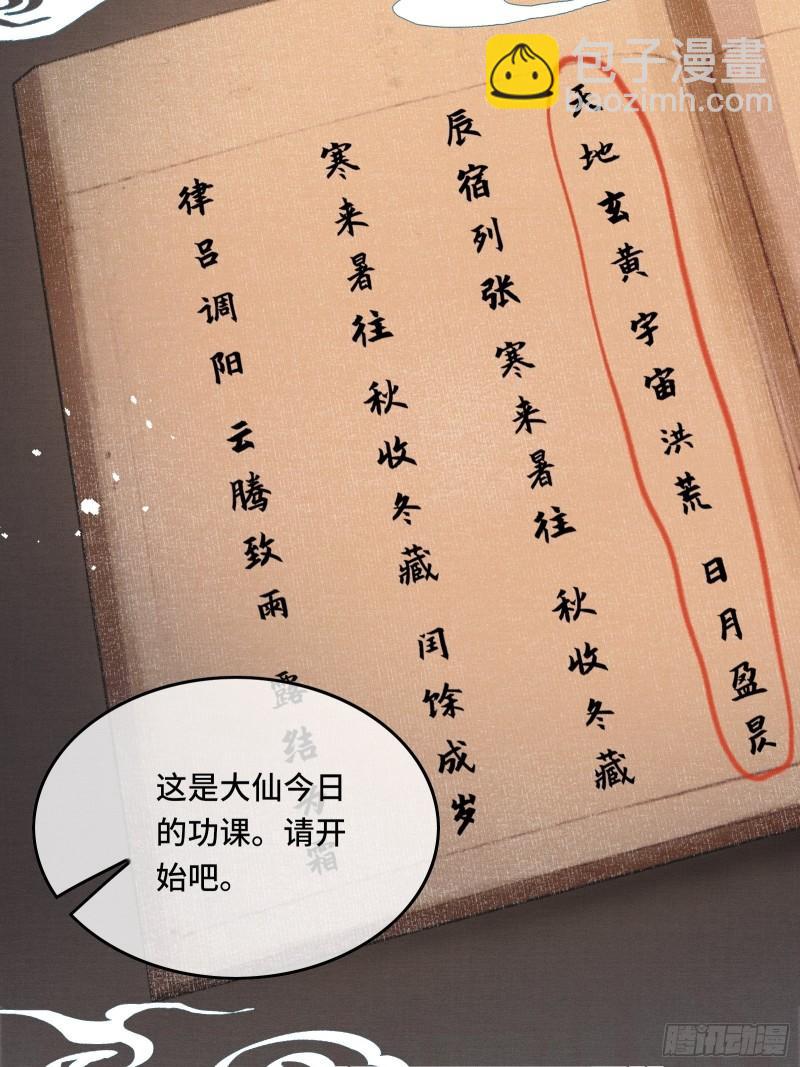 包子漫畫
baozimh.com
天地玄黄 宇宙洪荒 日月盈昃
辰宿列张 寒来暑往 秋收冬藏
寒来暑往 秋收冬藏 闰馀成岁
律吕调阳 云腾致雨 露结为霜
这是大仙今日
的功课。请开
始吧。
腾讯动漫